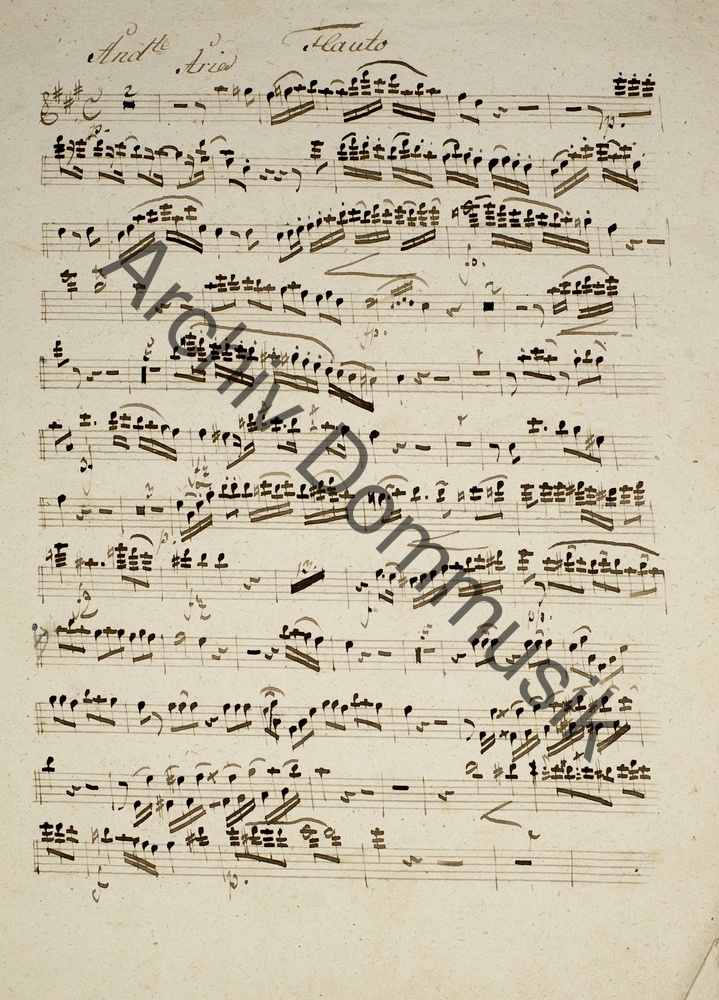 Andte Aria Flauto
2
p.
p.
p.
fp.
p.
p.
Archiv Dommusik